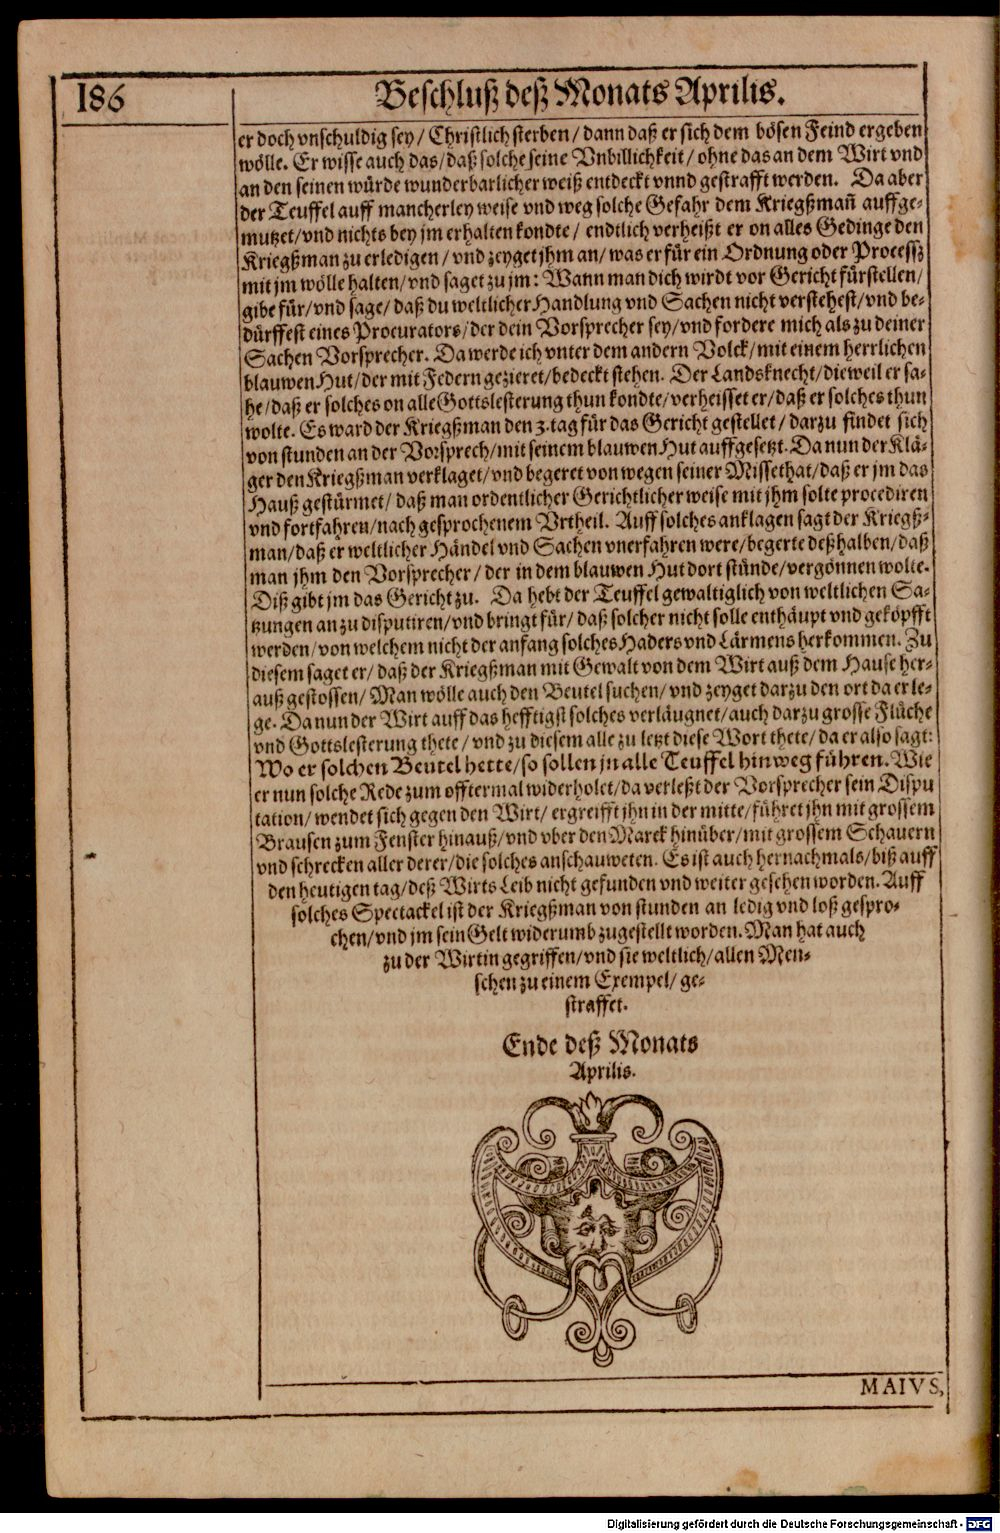 186
Beschluß deß Monats Aprilis.
er doch vnschuldig sey/ Christlich sterben/ dann daß er sich dem bösen Feind ergeben
wölle. Er wisse auch das/ daß solche seine Vnbillichkeit/ ohne das an dem Wirt vnd
an den seinen würde wunderbarlicher weiß entdeckt vnnd gestrafft werden. Da aber
der Teuffel auff mancherley weise vnd weg solche Gefahr dem Kriegßman̄ auffge-
mutzet/ vnd nichts bey jm erhalten kondte/ endtlich verheißt er on alles Gedinge den
Kriegßman zu erledigen/ vnd zeyget jhm an/ was er für ein Ordnung oder Processz
mit jm wölle halten/ vnd saget zu jm: Wann man dich wirdt vor Gericht fürstellen/
gibe für/ vnd sage/ daß du weltlicher Handlung vnd Sachen nicht verstehest/ vnd be-
dürffest eines Procurators/ der dein Vorsprecher sey/ vnd fordere mich als zu deiner
Sachen Vorsprecher. Da werde ich vnter dem andern Volck/ mit einem herrlichen
blauwen Hut/ der mit Federn gezieret/ bedeckt stehen. Der Landsknecht/ dieweil er sa-
he/ daß er solches on alle Gottslesterung thun kondte/ verheisset er/ daß er solches thun
wolte. Es ward der Kriegßman den 3. tag für das Gericht gestellet/ darzu findet sich
von stunden an der Vorsprech/ mit seinem blauwen Hut auffgesetzt. Da nun der Klä-
ger den Kriegßman verklaget/ vnd begeret von wegen seiner Missethat/ daß er jm das
Hauß gestürmet/ daß man ordentlicher Gerichtlicher weise mit jhm solte procediren
vnd fortfahren/ nach gesprochenem Vrtheil. Auff solches anklagen sagt der Kriegß-
man/ daß er weltlicher Händel vnd Sachen vnerfahren were/ begerte deßhalben/ daß
man jhm den Vorsprecher/ der in dem blauwen Hut dort stünde/ vergönnen wolte.
Diß gibt jm das Gericht zu. Da hebt der Teuffel gewaltiglich von weltlichen Sa-
tzungen an zu disputiren/ vnd bringt für/ daß solcher nicht solle enthäupt vnd geköpfft
werden/ von welchem nicht der anfang solches Haders vnd Lärmens herkommen. Zu
diesem saget er/ daß der Kriegßman mit Gewalt von dem Wirt auß dem Hause her-
auß gestossen/ Man wölle auch den Beutel suchen/ vnd zeyget darzu den ort da er le-
ge. Da nun der Wirt auff das hefftigst solches verläugnet/ auch darzu grosse Flüche
vnd Gottslesterung thete/ vnd zu diesem alle zu letzt diese Wort thete/ da er also sagt:
Wo er solchen Beutel hette/ so sollen jn alle Teuffel hinweg führen. Wie
er nun solche Rede zum offtermal widerholet/ da verleßt der Vorsprecher sein Dispu
tation/ wendet sich gegen den Wirt/ ergreifft jhn in der mitte/ führet jhn mit grossem
Brausen zum Fenster hinauß/ vnd vber den Marck hinüber/ mit grossem Schauern
vnd schrecken aller derer/ die solches anschauweten. Es ist auch hernachmals/ biß auff
den heutigen tag/ deß Wirts Leib nicht gefunden vnd weiter gesehen worden. Auff
solches Spectackel ist der Kriegßman von stunden an ledig vnd loß gespro-
chen/ vnd jm sein Gelt widerumb zugestellt worden. Man hat auch
zu der Wirtin gegriffen/ vnd sie weltlich/ allen Men-
schen zu einem Exempel/ ge-
straffet.
Ende deß Monats
Aprilis.
MAIVS,
Digitalisierung gefördert durch die Deutsche Forschungsgemeinschaft - DFG